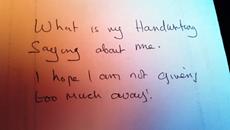 What is my Handwriting
Saying about me.
I hope I am not giving
too much away!.